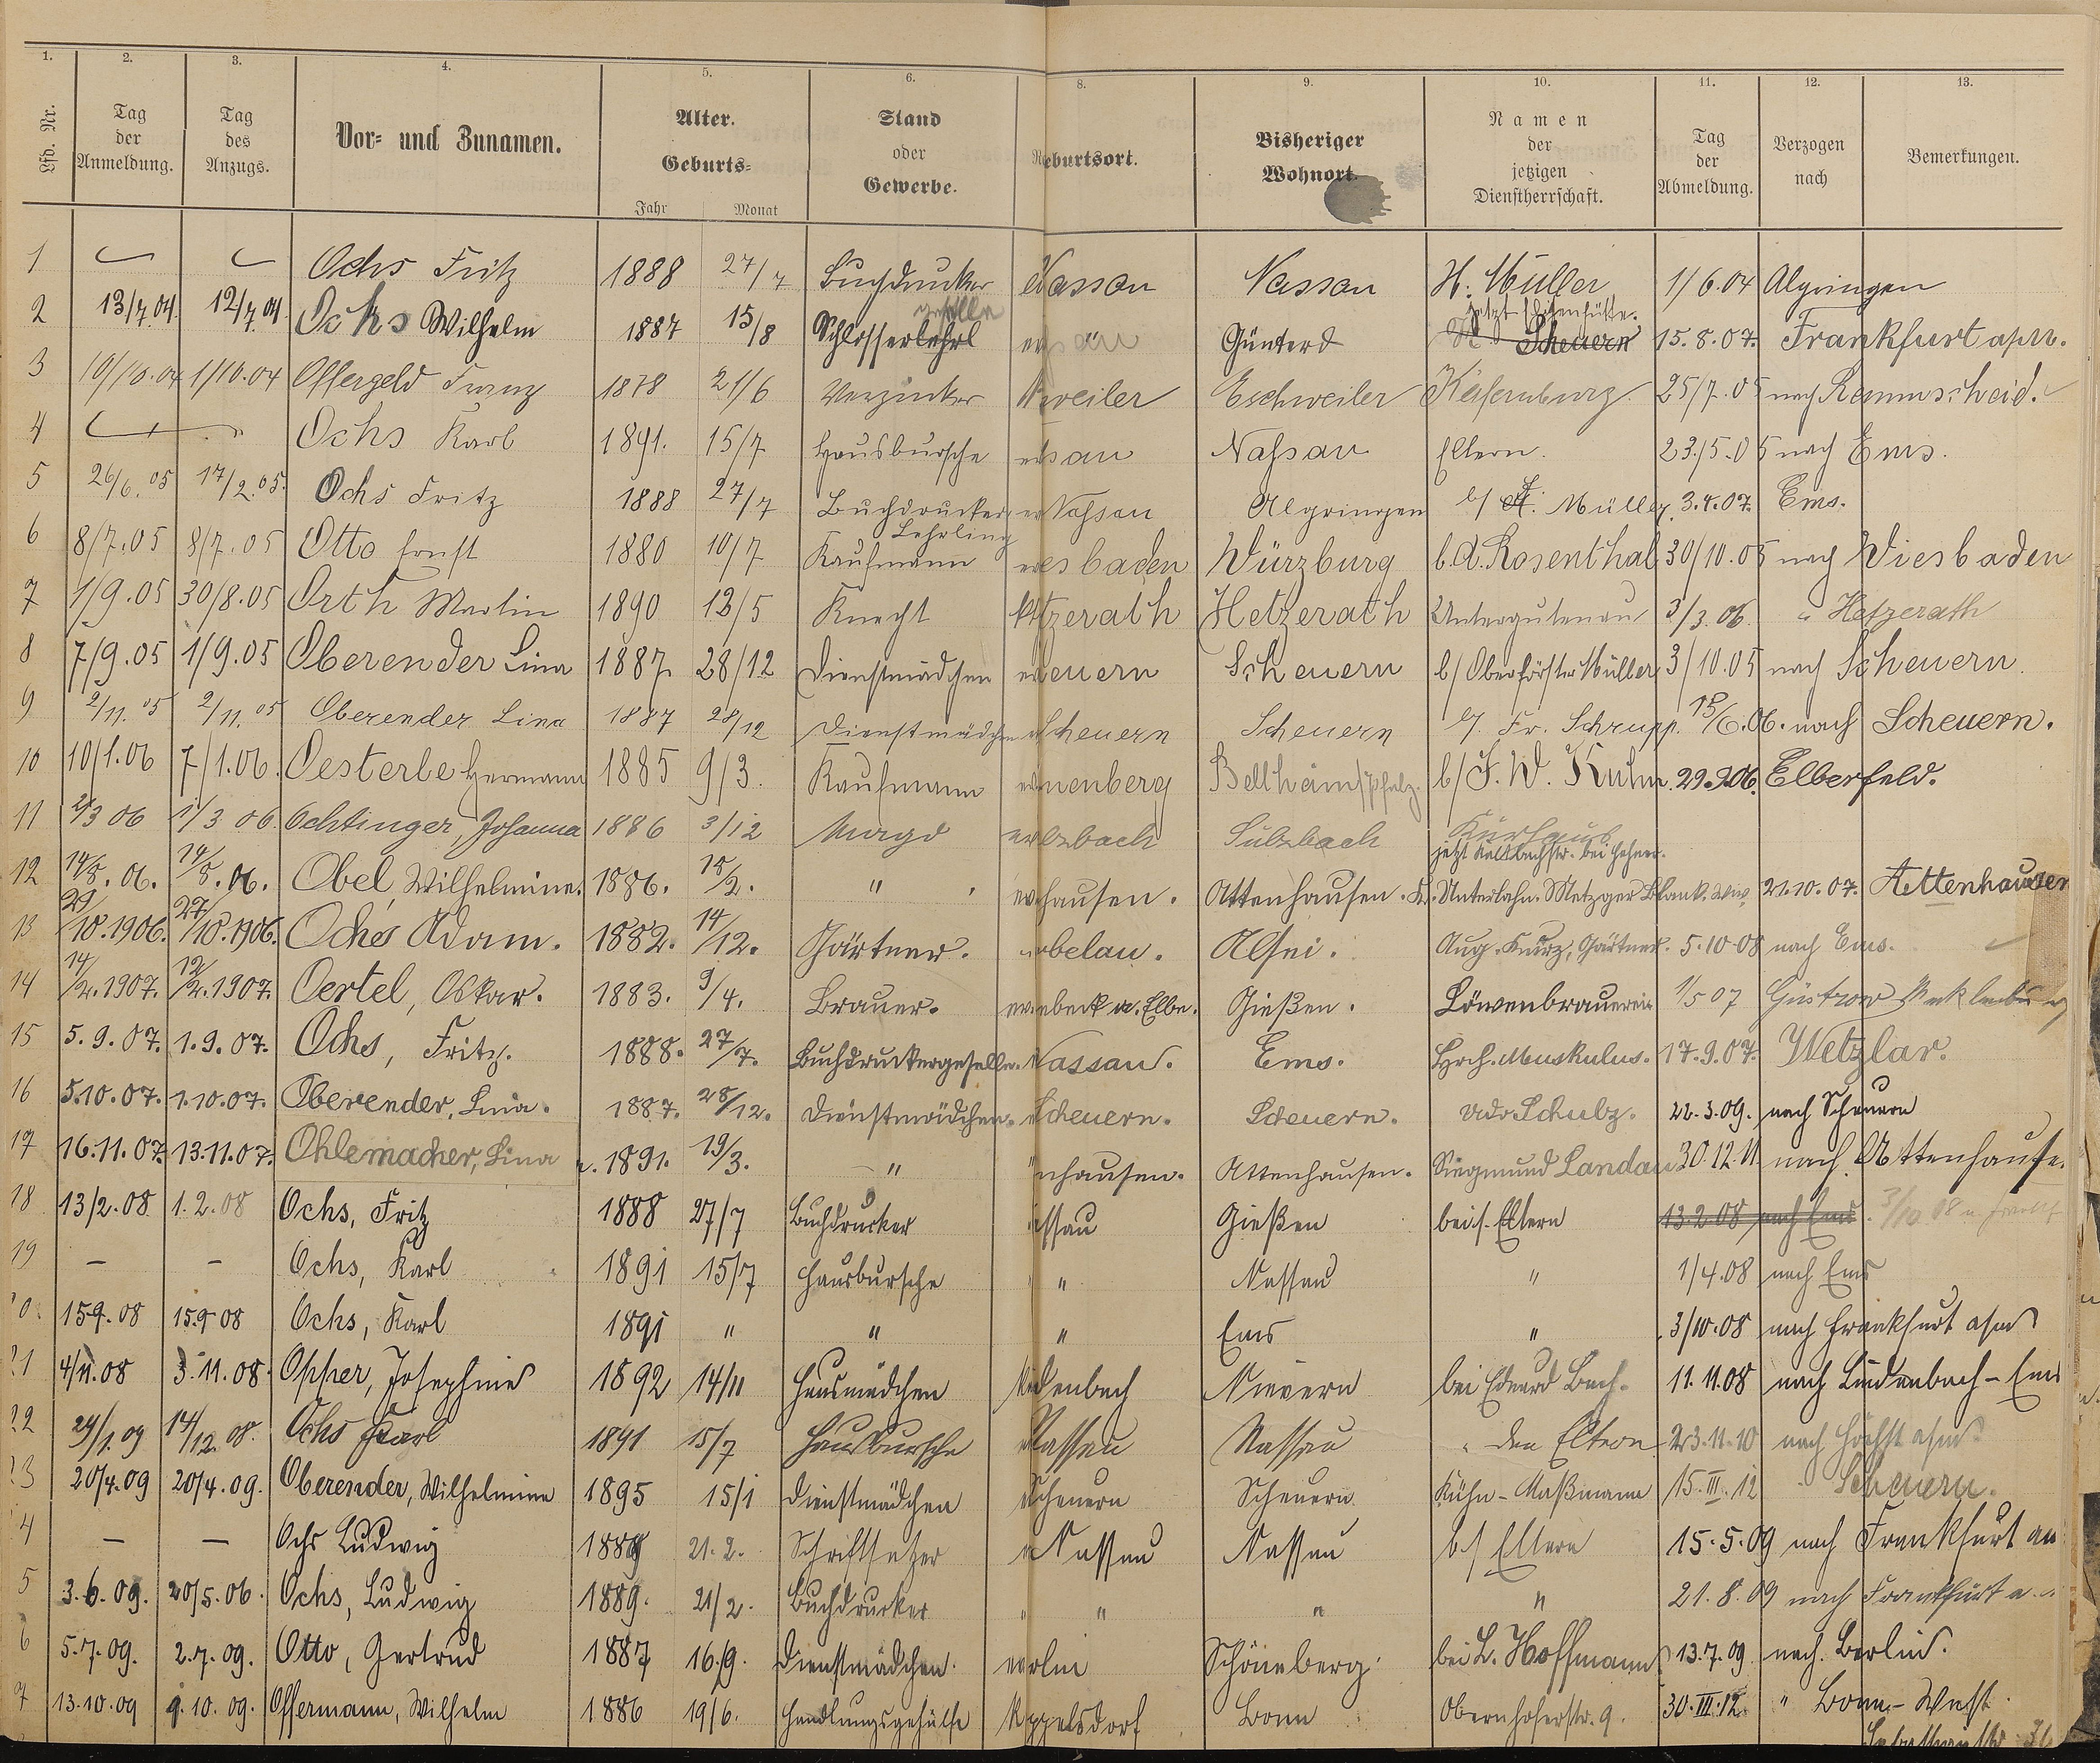 1. 2. 3. 4. 5. 6. 8. 9. 10. 11. 12. 13.
Lfd. Nr. Tag der Anmeldung. Tag des Anzugs. Vor- und Zunamen. Alter. Geburts- Jahr Monat Stand oder Gewerbe. eburtsort. Bisheriger Wohnort. Namen der jetzigen Dienstherrschaft. Tag der Abmeldung. Verzogen nach Bemerkungen.
1 Ochs Fritz 1888 27/7 Buchdrucker Nassau Nassau H. Müller 1/6.04 Algringen
2 13/7.04. 12/7.04. Ochs Wilhelm 1887 15/8 Schlosserlehrl geselle au Günterod jetzt Scheuern 15.8.07. Frankfurt a/M.
3 10/10.04 1/10.04 Offergeld Franz 1878 21/6 Verzinker weiler Eschweiler Käfernburg 25/7.05 nach Remmscheid.
4 Ochs Karl 1891. 15/7 Hausbursche sau Nassau Eltern. 23/5.05 nach Ems.
5 26/6.05 17/2.05. Ochs Fritz 1888 27/7 Buchdrucker Lehrling Nassau Algringen b/ H. Müller. 3.4.07. Ems.
6 8/7.05 8/7.05 Otto Ernst 1880 10/7 Kaufmann esbaden Würzburg b. A. Rosenthal 30/10.05 nach Wiesbaden
7 1/9.05 30/8.05 Orth Martin 1890 13/5 Knecht tzerath Hetzerath Untergutenau 3/3.06. " Hetzerath
8 7/9.05 1/9.05 Oberender Lina 1887 28/12 Dienstmädchen euern Scheuern b/ Oberförster Müller 3/10.05 nach Scheuern.
9 2/11.05 2/11.05 Oberender Lina 1887 28/12 Dienstmädchen Scheuern Scheuern b/. Fr. Schrupp. 15/6.06. nach Scheuern.
10 10/1.06 7/1.06. Oesterle Hermann 1885 9/3. Kaufmann nenberg Bellheim/Pfalz. b/ J. W. Kuhn. 29.9.06. Elberfeld.
11 2/3 06 1/3 06. Ochtinger, Johanna 1886 3/12 Magd lzbach Sulzbach Kurhaus
12 14/8.06. 14/8.06. Obel, Wilhelmine. 1886. 18/2. " hausen. Attenhausen. Kr. Unterlahn. jetzt Kaltbachstr. bei Metzger Blank. Wiw. 21.10.07. Attenhausen
13 29/10.1906. 27/10.1906. Ochs Adam. 1882. 14/12. Gärtner. belau. Alsei. Aug. Kurz, Gärtner. 5.10.08 nach Ems.
14 14/2.1907. 12/2.1907. Oertel, Oskar. 1883. 9/4. Brauer. nebeck a. Elbe. Gießen. Löwenbrauerei 1/5 07 Güstrow Meklenburg
15 5.9.07. 1.9.07. Ochs, Fritz. 1888. 27/7. Buchdruckergeselle. Nassau. Ems. Hrch. Muskulus. 17.9.07. Wetzlar.
16 5.10.07. 1.10.07. Oberender, Lina. 1887. 28/12. Dienstmädchen. Scheuern. Scheuern. Ado Schulz. 22.3.09. nach Scheuern
17 16.11.07. 13.11.07. Ohlemacher, Lina 1891. 19/3. " nhausen. Attenhausen. Siegmund Landau 30.12.11 nach Attenhause.
18 13/2.08 1.2.08 Ochs, Fritz 1888 27/7 Buchdrucker assau Gießen bei s. Eltern 13.2.08 nach Ems. 3/10 08 n. Frankf
19 – – Ochs, Karl 1891 15/7 Hausbursche " Nassau " 1/4.08 nach Ems
20. 15.9.08 15.9 08 Ochs, Karl 1891 " " " Ems " 3/10.08 nach Frankfurt a/m
21 4/11.08 3.11.08. Opper, Josephine 1892 14/11 Hausmädchen denbach Nievern bei Eduard Bach. 11.11.08 nach Lindenbach-Ems
22 29/1.09 14/12.08. Ochs Karl 1891 15/7 Hausbursche Nassau Nassau " den Eltern 23.11.10 nach Höchst a/m
23 20/4.09 20/4.09. Oberender, Wilhelmine 1895 15/1 Dienstmädchen Scheuern Scheuern Kühn-Maßmann 15.III.12 Scheuern.
4 – – Ochs Ludwig 1889 21.2. Schriftsetzer Nassau Nassau b./ Eltern 15.5.09 nach Frankfurt am
5 3.6.09. 20/5.06. Ochs, Ludwig 1889. 21/2. Buchdrucker " " " 21.8.09 nach Frankfurt a.
6 5.7.09. 2.7.09. Otto, Gertrud 1887 16/9. Dienstmädchen. erlin Schöneberg. bei L. Hoffmann 13.7.09 nach Berlin.
7 13.10.09 9.10.09. Offermann, Wilhelm 1886 19/6. Handlungsgehülfe ppelsdorf Bonn Obernhoferstr. 9. 30.III.12. " Bonn-West.
36